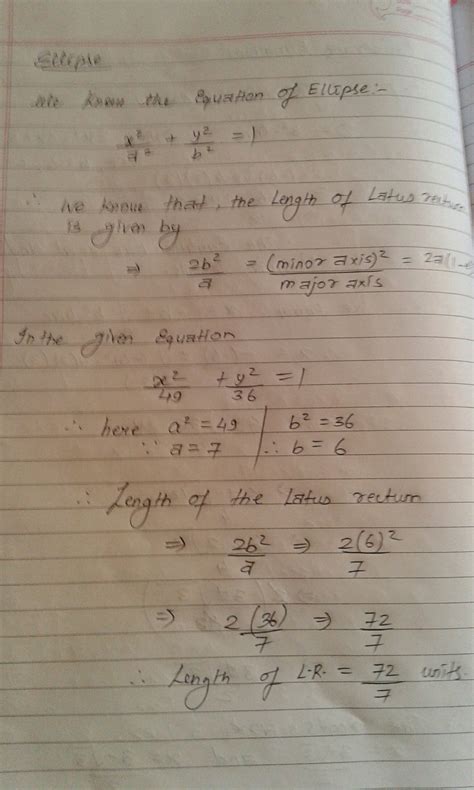 Ellipse
We know the Equation of Ellipse:-
x²/a² + y²/b² = 1
∴ We know that, the Length of Latus rectum
is given by
⇒ 2b²/a = (minor axis)²/major axis = 2a(1-e
In the given Equation
x²/49 + y²/36 = 1
∴ here a² = 49 | b² = 36
∵ a = 7 | ∴ b = 6
∴ Length of the Latus rectum
⇒ 2b²/a ⇒ 2(6)²/7
⇒ 2(36)/7 ⇒ 72/7
∴ Length of L.R. = 72/7 units.